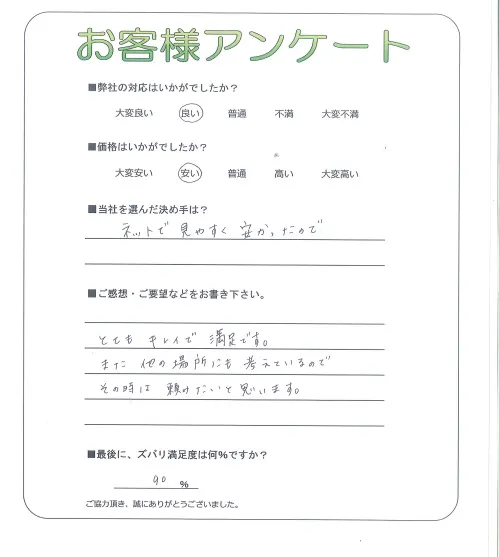 お客様アンケート
■弊社の対応はいかがでしたか？
大変良い 良い 普通 不満 大変不満
■価格はいかがでしたか？
大変安い 安い 普通 高い 大変高い
■当社を選んだ決め手は？
ネットで 見やすく 安かったので
■ご感想・ご要望などをお書き下さい。
とても キレイで 満足です。
また 他の 場所にも 考えているので
その時は 頼みたいと 思います。
■最後に、ズバリ満足度は何%ですか？
90 %
ご協力頂き、誠にありがとうございました。